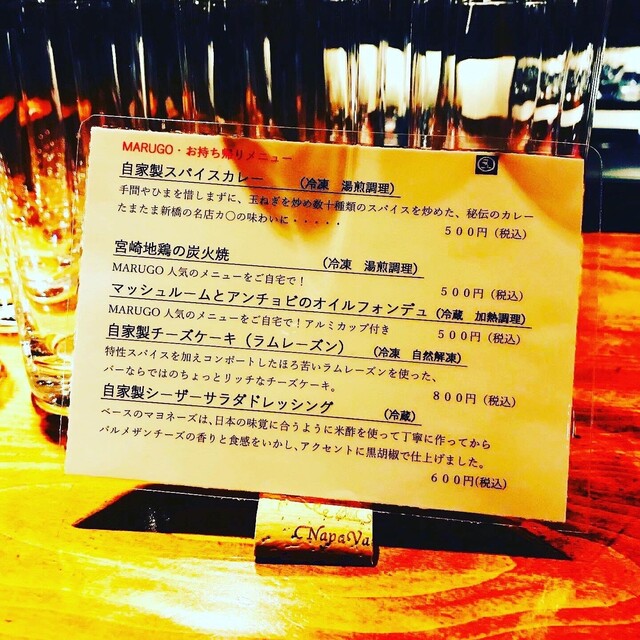 MARUGO・お持ち帰りメニュー
自家製スパイスカレー （冷凍 湯煎調理）
手間やひまを惜しまずに、玉ねぎを炒め数十種類のスパイスを炒めた、秘伝のカレー
たまたま新橋の名店カ〇の味わいに・・・・・
５００円（税込）
宮崎地鶏の炭火焼 （冷凍 湯煎調理）
MARUGO 人気のメニューをご自宅で！
５００円（税込）
マッシュルームとアンチョビのオイルフォンデュ（冷蔵 加熱調理）
MARUGO 人気のメニューをご自宅で！アルミカップ付き
５００円（税込）
自家製チーズケーキ（ラムレーズン） （冷凍 自然解凍）
特性スパイスを加えコンポートしたほろ苦いラムレーズンを使った、
バーならではのちょっとリッチなチーズケーキ。
８００円（税込）
自家製シーザーサラダドレッシング （冷蔵）
ベースのマヨネーズは、日本の味覚に合うように米酢を使って丁寧に作ってから
パルメザンチーズの香りと食感をいかし、アクセントに黒胡椒で仕上げました。
６００円（税込）
NapaVa